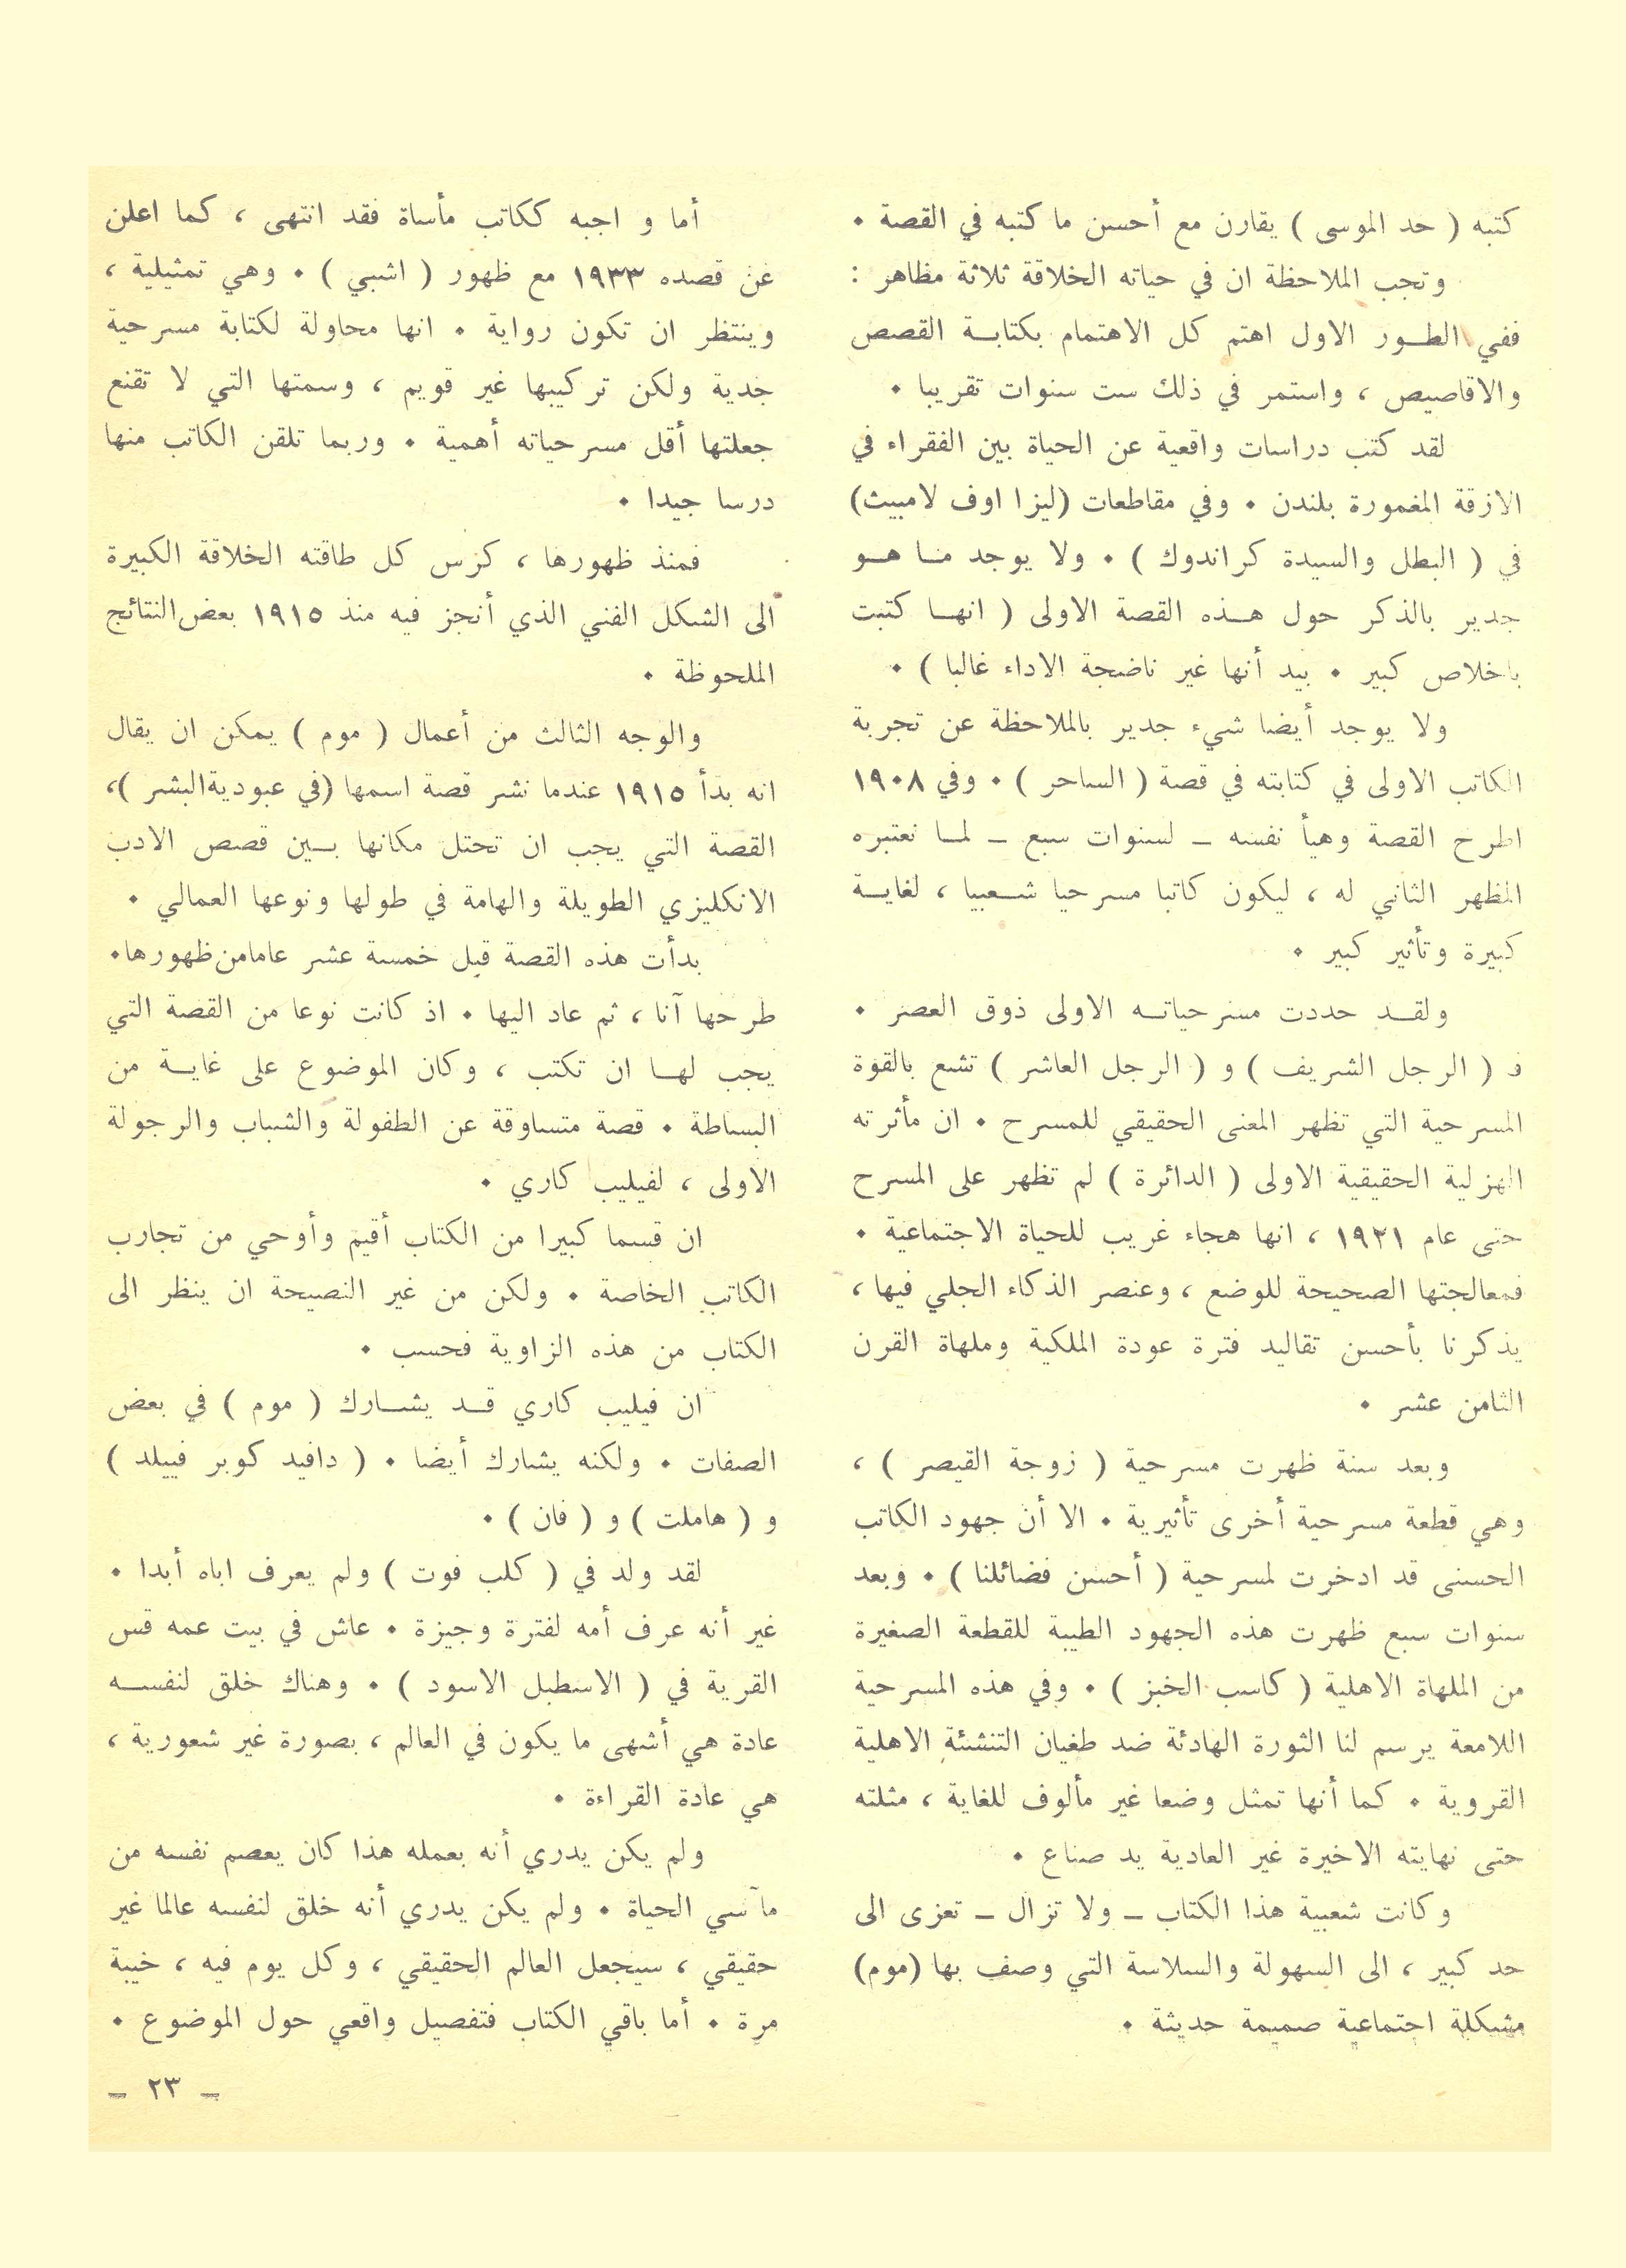 كتبه ( حد الموسى ) يقارن مع أحسن ما كتبه في القصة ٠
وتجب الملاحظة ان في حياته الخلاقة ثلاثة مظاهر :
ففي الطــور الاول اهتم كل الاهتمام بكتابــة القصص
والاقاصيص ، واستمر في ذلك ست سنوات تقريبا ٠
لقد كتب دراسات واقعية عن الحياة بين الفقراء في
الازقة المغمورة بلندن ٠ وفي مقاطعات (ليزا اوف لامبيث)
في ( البطل والسيدة كراندوك ) ٠ ولا يوجد مـا هــو
جدير بالذكر حول هــذه القصة الاولى ( انهــا كتبت
باخلاص كبير ٠ بيد أنها غير ناضجة الاداء غالبا ) ٠
ولا يوجد أيضا شيء جدير بالملاحظة عن تجربة
الكاتب الاولى في كتابته في قصة ( الساحر ) ٠ وفي ١٩٠٨
اطرح القصة وهيأ نفسه ــ لسنوات سبع ــ لمــا نعتبره
المظهر الثاني له ، ليكون كاتبا مسرحيا شــعبيا ، لغايــة
كبيرة وتأثير كبير ٠
ولقــد حددت مسرحياتــه الاولى ذوق العصر ٠
فـ ( الرجل الشريف ) و ( الرجل العاشر ) تشع بالقوة
المسرحية التي تظهر المعنى الحقيقي للمسرح ٠ ان مأثرته
الهزلية الحقيقية الاولى ( الدائرة ) لم تظهر على المسرح
حتى عام ١٩٢١ ، انها هجاء غريب للحياة الاجتماعية ٠
فمعالجتها الصحيحة للوضع ، وعنصر الذكاء الجلي فيها ،
يذكرنا بأحسن تقاليد فترة عودة الملكية وملهاة القرن
الثامن عشر ٠
وبعد سنة ظهرت مسرحية ( زوجة القيصر ) ،
وهي قطعة مسرحية أخرى تأثيرية ٠ الا أن جهود الكاتب
الحسنى قد ادخرت لمسرحية ( أحسن فضائلنا ) ٠ وبعد
سنوات سبع ظهرت هذه الجهود الطيبة للقطعة الصغيرة
من الملهاة الاهلية ( كاسب الخبز ) ٠ وفي هذه المسرحية
اللامعة يرسم لنا الثورة الهادئة ضد طغيان التنشئة الاهلية
القروية ٠ كما أنها تمثل وضعا غير مألوف للغاية ، مثلته
حتى نهايته الاخيرة غير العادية يد صناع ٠
وكانت شعبية هذا الكتاب ــ ولا تزال ــ تعزى الى
حد كبير ، الى السهولة والسلاسة التي وصف بها (موم)
مشكلة اجتماعية صميمة حديثة ٠
أما و اجبه ككاتب مأساة فقد انتهى ، كما اعلن
عن قصده ١٩٣٣ مع ظهور ( اشبي ) ٠ وهي تمثيلية ،
وينتظر ان تكون رواية ٠ انها محاولة لكتابة مسرحية
جدية ولكن تركيبها غير قويم ، وسمتها التي لا تقنع
جعلتها أقل مسرحياته أهمية ٠ وربما تلقن الكاتب منها
درسا جيدا ٠
فمنذ ظهورها ، كرس كل طاقته الخلاقة الكبيرة
الى الشكل الفني الذي أنجز فيه منذ ١٩١٥ بعض النتائج
الملحوظة ٠
والوجه الثالث من أعمال ( موم ) يمكن ان يقال
انه بدأ ١٩١٥ عندما نشر قصة اسمها (في عبودية البشر )،
القصة التي يجب ان تحتل مكانها بــين قصص الادب
الانكليزي الطويلة والهامة في طولها ونوعها العمالي ٠
بدأت هذه القصة قبل خمسة عشر عامامن ظهورها٠
طرحها آنا ، ثم عاد اليها ٠ اذ كانت نوعا من القصة التي
يجب لهــا ان تكتب ، وكان الموضوع على غايــة من
البساطة ٠ قصة متساوقة عن الطفولة والشباب والرجولة
الاولى ، لفيليب كاري ٠
ان قسما كبيرا من الكتاب أقيم وأوحي من تجارب
الكاتب الخاصة ٠ ولكن من غير النصيحة ان ينظر الى
الكتاب من هذه الزاوية فحسب ٠
ان فيليب كاري قــد يشــارك ( موم ) في بعض
الصفات ٠ ولكنه يشارك أيضا ٠ ( دافيد كوبر فييلد )
و ( هاملت ) و ( فان ) ٠
لقد ولد في ( كلب فوت ) ولم يعرف اباه أبدا ٠
غير أنه عرف أمه لفترة وجيزة ٠ عاش في بيت عمه قس
القرية في ( الاسطبل الاسود ) ٠ وهناك خلق لنفســه
عادة هي أشهى ما يكون في العالم ، بصورة غير شعورية ،
هي عادة القراءة ٠
ولم يكن يدري أنه بعمله هذا كان يعصم نفسه من
مآسي الحياة ٠ ولم يكن يدري أنه خلق لنفسه عالما غير
حقيقي ، سيجعل العالم الحقيقي ، وكل يوم فيه ، خيبة
مرة ٠ أما باقي الكتاب فتفصيل واقعي حول الموضوع ٠
ــ ٢٣ ــ